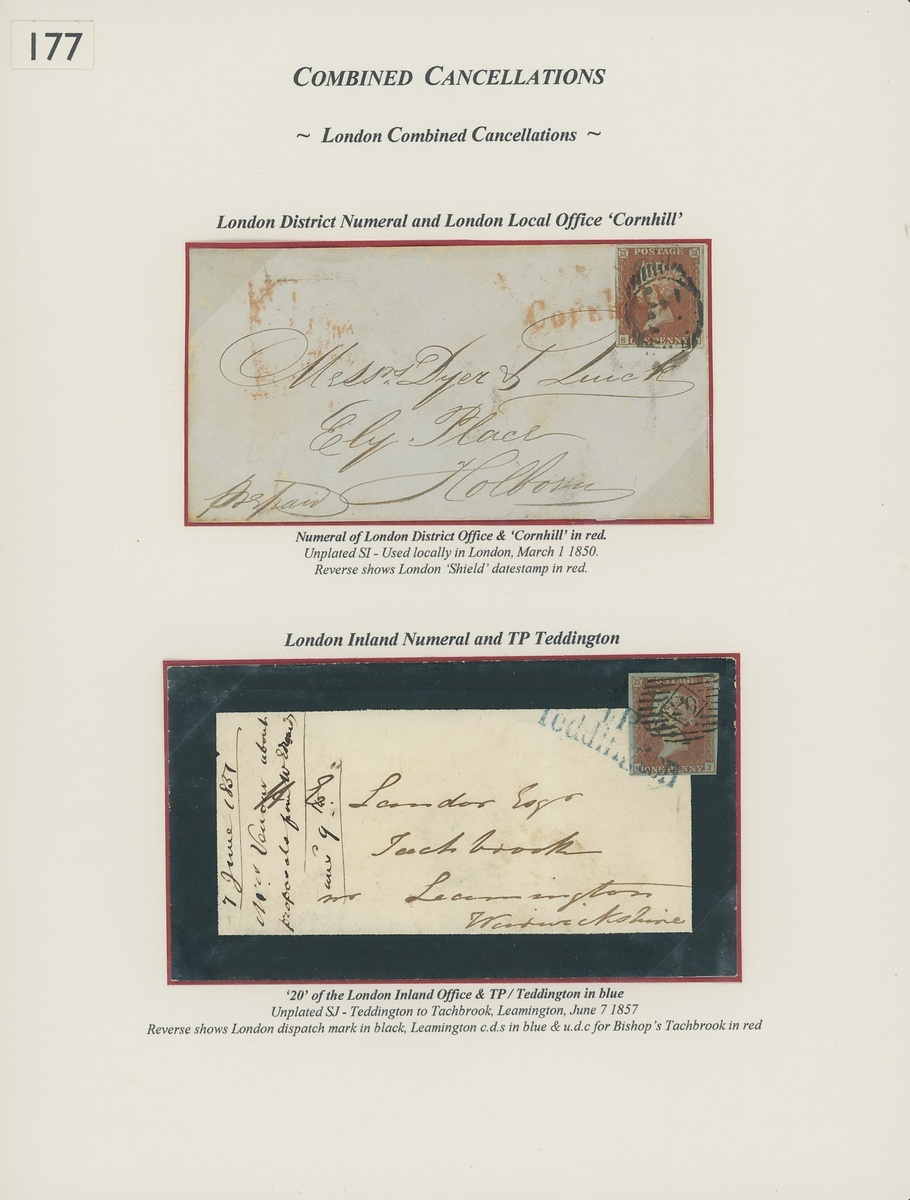 177
COMBINED CANCELLATIONS
~ London Combined Cancellations ~
London District Numeral and London Local Office ‘Cornhill’
POSTAGE
Cornh
S ONE PENNY
Messrs Dyer & Quick
Ely Place
Holborn
prepaid
Numeral of London District Office & ‘Cornhill’ in red.
Unplated SI - Used locally in London, March 1 1850.
Reverse shows London ‘Shield’ datestamp in red.
London Inland Numeral and TP Teddington
POSTAGE
20
TP
Teddington
ONE PENNY J
7 June 1857
about
proposals
Landor Esqr
Tachbrook
nr Leamington
Warwickshire
‘20’ of the London Inland Office & TP / Teddington in blue
Unplated SJ - Teddington to Tachbrook, Leamington, June 7 1857
Reverse shows London dispatch mark in black, Leamington c.d.s in blue & u.d.c for Bishop’s Tachbrook in red